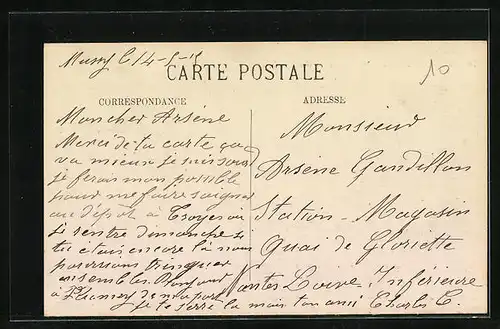 Mussy C 14-5-15
CARTE POSTALE
10
CORRESPONDANCE
ADRESSE
Mon cher Arsène
Merci de ta carte ça
va mieux je suis sous
je ferais mon possible
pour me faire soigner
au dépôt à Troyes ou
je rentre dimanche si
tu étais encore là nous
pourrions trinquer
ensembles Bonjour
à de ma part
je te serre la main ton ami Charles C.
Monsieur
Arsène Gandillon
Station - Magasin
Quai de Gloriette
Nantes Loire Inférieure